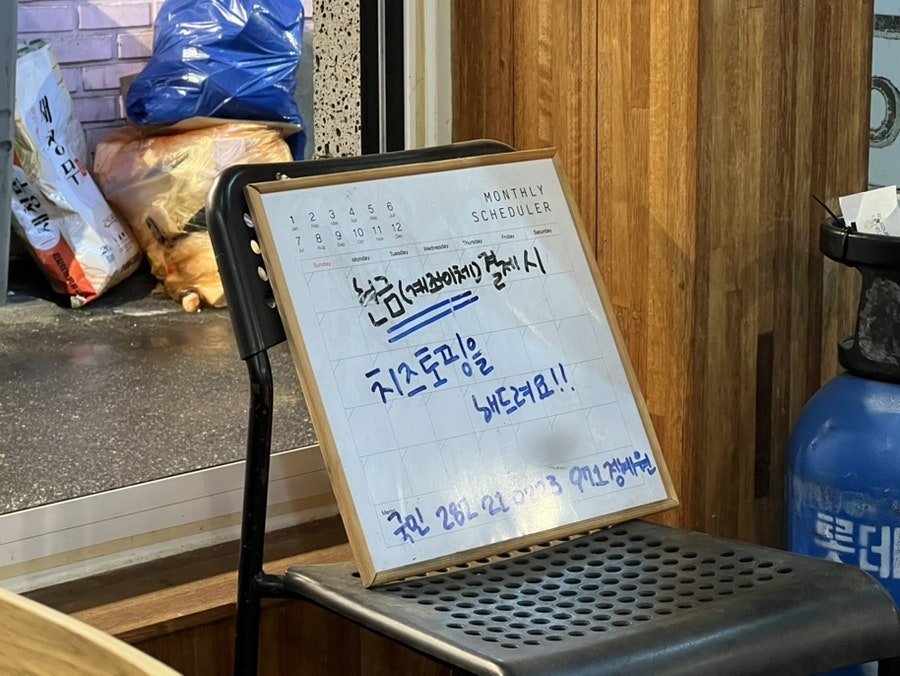 MONTHLY
SCHEDULER
1 2 3 4 5 6
Jan Feb Mar Apr May Jun
7 8 9 10 11 12
Jul Aug Sep Oct Nov Dec
Sunday Monday Tuesday Wednesday Thursday Friday Saturday
현금(계좌이체)결제 시
치즈토핑을
해드려요!!
Memo
국민
정예원
롯데